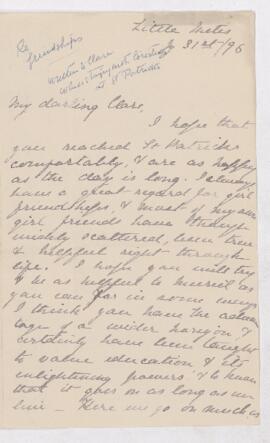 Re friendships
written to Clare
when staying with
at St Patricks
Little Metis
31st/96
My darling Clare,
I hope that
you reached St Patricks
comfortably, & are as happy
as the day is long. I always
have a great regard for girl
friendships, & most of my own
girl friends have though
widely scattered, been true
& helpful right through
life. I hope you will try
& be as helpful to Muriel as
you can for in some ways
I think you have the advan
tage of a wider horizon &
certainly have been taught
to value education & its
enlightening powers & to know
that it goes on as long as we
live — Here we go on much as